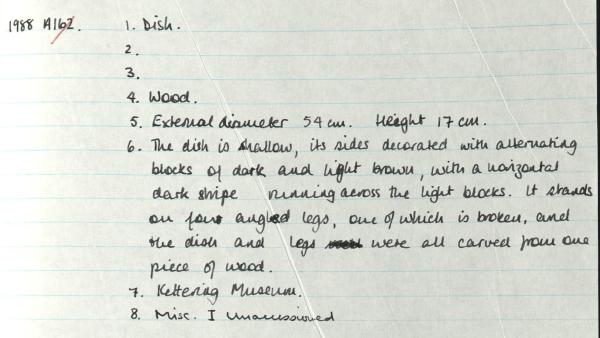 1988 A162. 1. Dish.
2.
3.
4. Wood.
5. External diameter 54 cm. Height 17 cm.
6. The dish is shallow, its sides decorated with alternating
blocks of dark and light brown, with a horizontal
dark stripe running across the light blocks. It stands
on four angled legs, one of which is broken, and
the dish and legs were all carved from one
piece of wood.
7. Kettering Museum.
8. Misc. I Unaccessioned